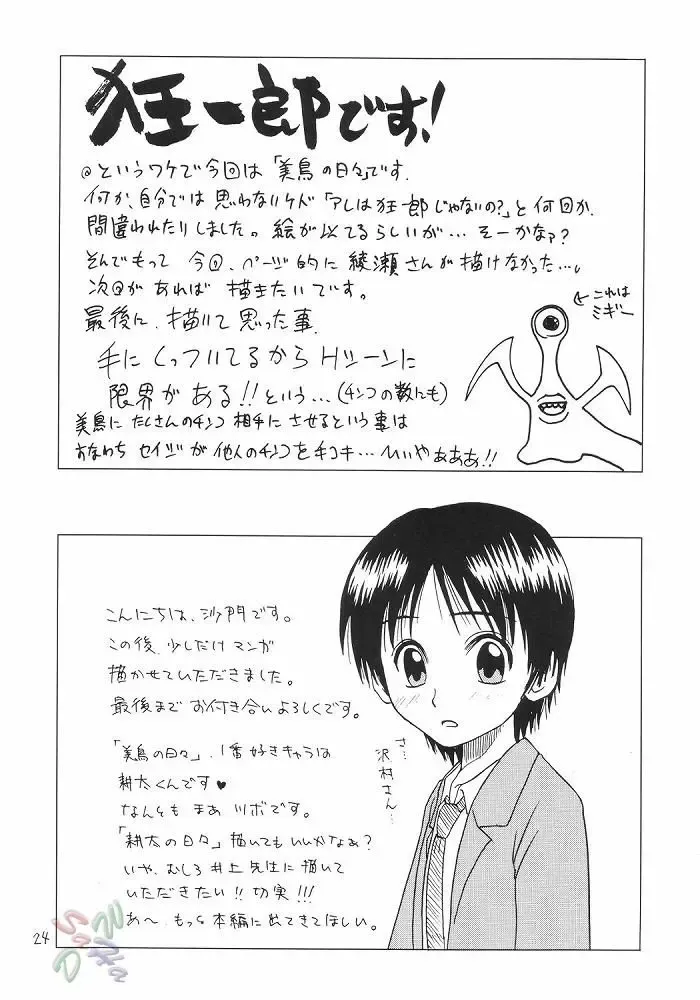 狂一郎です!
@というワケで今回は「美鳥の日々」です。
何か、自分では思わないケド「アレは狂一郎じゃないの?」と何回か、
間違われたりしました。絵が似てるらしいが…そーかなァ?
そんでもって今回、ページ的に綾瀬さんが描けなかった…。
次回があれば描きたいです。
最後に、描いて思った事
手にくっついてるからHシーンに
限界がある!!という…(チンコの数にも)
美鳥にたくさんのチンコ相手にさせるという事は
すなわちセイジが他人のチンコを手コキ…いいやぁあああ!!
←これは
ミギー
こんにちは、沙門です。
この後、少しだけマンガ
描かせていただきました。
最後までお付き合いよろしくです。
「美鳥の日々」、1番好きキャラは
耕太くんです♥
なんとも まぁ ツボです。
「耕太の日々」描いてもいいかなぁ?
いや、むしろ井上先生に描いて
いただきたい!!切実!!!
あ〜、もっと本編に出てきてほしい。
さ…
沢村さん…
24